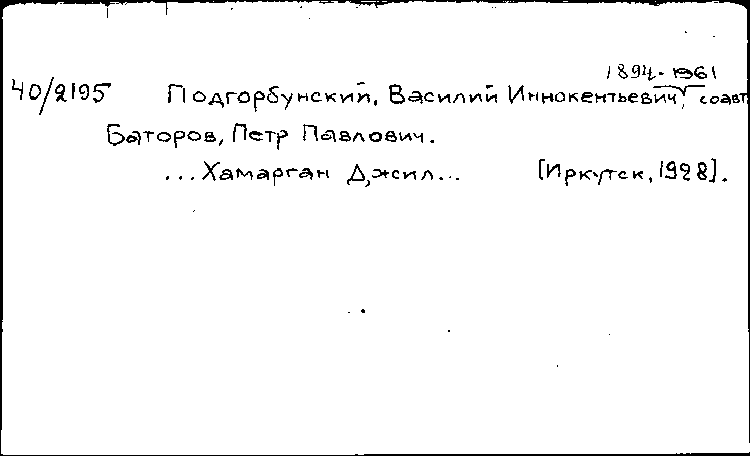 1894-1961
40/2195 Подгорбунский, Василий Иннокентьевич, соавт.
Баторов, Петр Павлович.
...Хамарган Джил... [Иркутск, 1928].